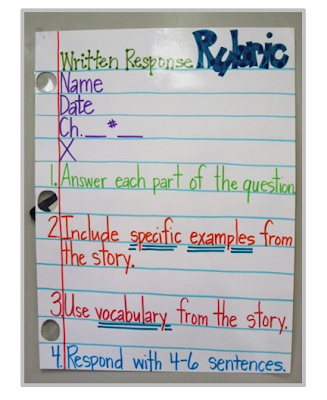 Written Response Rubric
Name
Date
Ch.___#___
X
1. Answer each part of the question
2. Include specific examples from
the story.
3. Use vocabulary from the story.
4. Respond with 4-6 sentences.